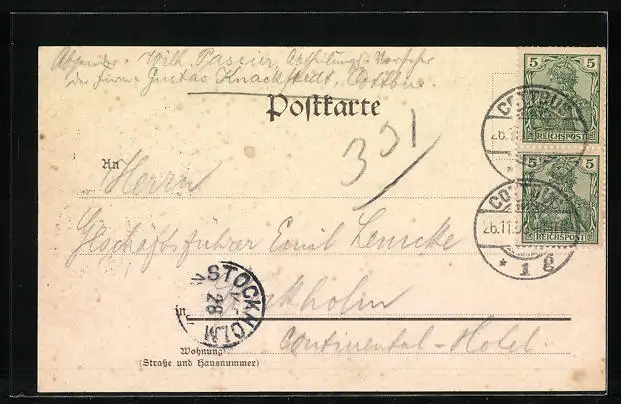 Absender: Wilh. Passier, Abtheilungs-Vorsteher
der Firma Gustav Knackstedt, Cottbus.
5
5
REICHSPOST
5
5
REICHSPOST
COTTBUS
26.11
COTTBUS
26.11.9
* 1 g
Postkarte
351
An Herrn
Geschäftsführer Emil Lemcke
in Stockholm
STOCKHOLM
28
Continental-Hotel.
Wohnung
(Straße und Hausnummer)